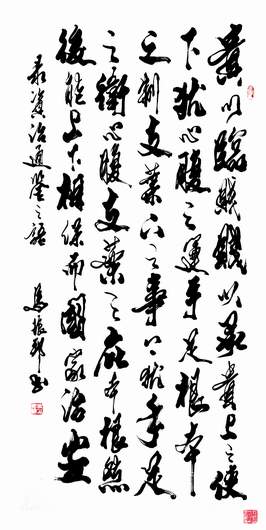 貴以臨賤賤以承貴上之使
下犹心腹之運手足根本
之制支葉下之事上犹手足
之衛心腹支葉之庇本根然
後能上下相保而國家治安
录資治通鑒之語 馬振邦书